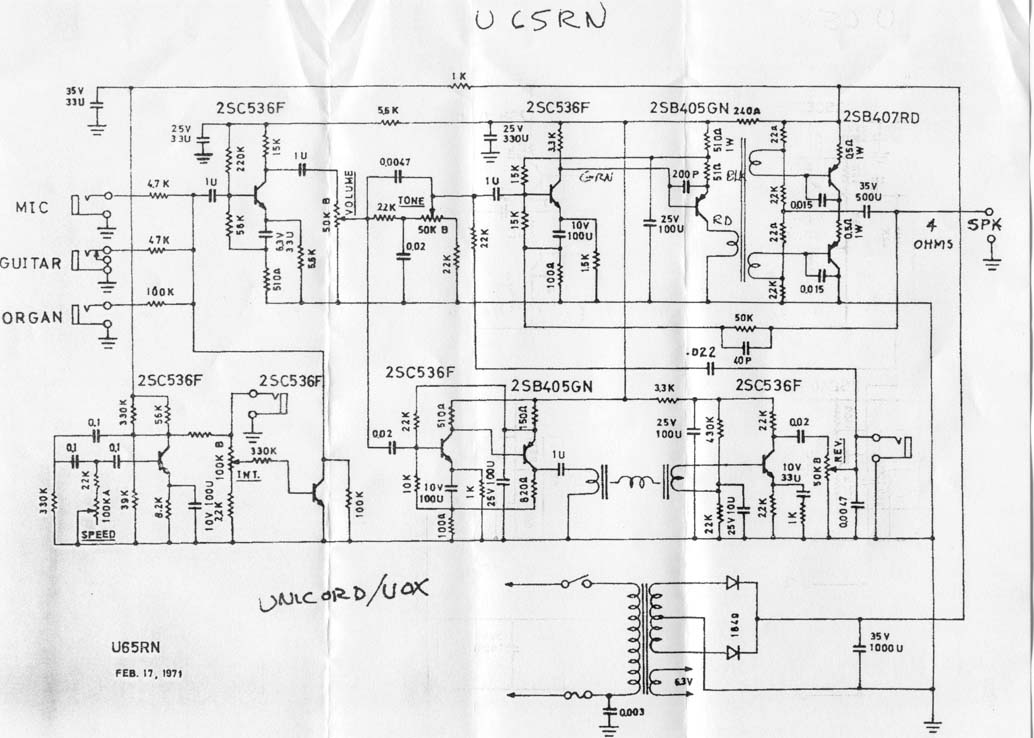 U65RN
1K
35V
33U
2SC536F
25V
33U
5,6K
2SC536F
25V
330U
2SB405GN
240Ω
2SB407RD
220K
15K
1U
0,0047
3.3K
510Ω
1W
51Ω
22Ω
0,5Ω
1W
MIC
4.7K
1U
VOLUME
50K B
TONE
22K
50K B
1U
15K
GRN
200P
BLK
RD
2,2K
0,015
35V
500U
4
OHMS
SPK
56K
6.3V
33U
5,6K
510Ω
0,02
2.2K
22K
15K
10V
100U
100Ω
1.5K
25V
100U
22Ω
0.5Ω
1W
2.2K
0,015
GUITAR
47K
ORGAN
100K
50K
40P
.022
2SC536F
2SC536F
2SC536F
2SB405GN
3,3K
2SC536F
330K
56K
0,1
0,1
0,1
330K
22K
100KA
SPEED
39K
8.2K
10V 100U
2,2K
100K B
INT.
330K
100K
0,02
22K
510Ω
10K
10V
100U
100Ω
1K
25V 100U
150Ω
820Ω
1U
25V
100U
430K
22K
25V 10U
2.2K
0,02
10V
33U
2,2K
1K
50KB
REV.
0,0047
UNICORD/VOX
U65RN
FEB. 17, 1971
6.3V
0,003
35V
1000U